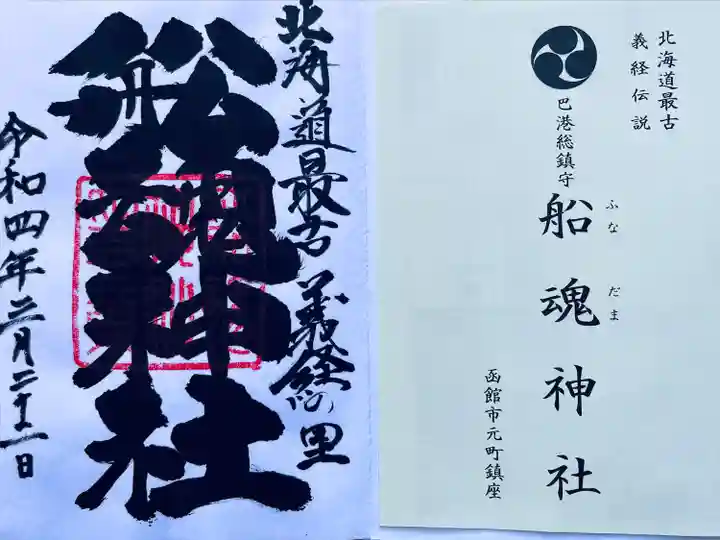 北海道最古 義経の里
船魂神社
令和四年二月二十一日
北海道最古
義経伝説
巴港総鎮守
船魂神社
ふなだま
函館市元町鎮座